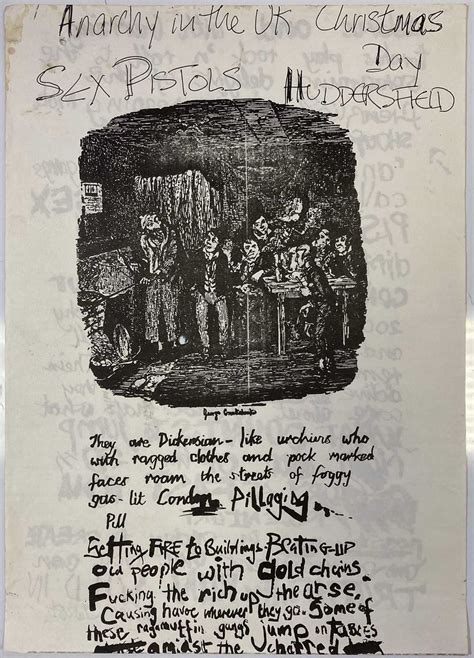 Anarchy in the UK Christmas
Day
SEX PISTOLS HUDDERSFIELD
George Cruikshank
They are Dickensian - like urchins who
with ragged clothes and pock marked
faces roam the streets of foggy
gas-lit London Pillaging
Pill
Setting FIRE to Buildings BEATING-UP
old people with gold chains.
Fucking the rich up the arse.
Causing havoc wherever they go. Some of
these ragamuffin gangs jump on TABLES
amidst the charred